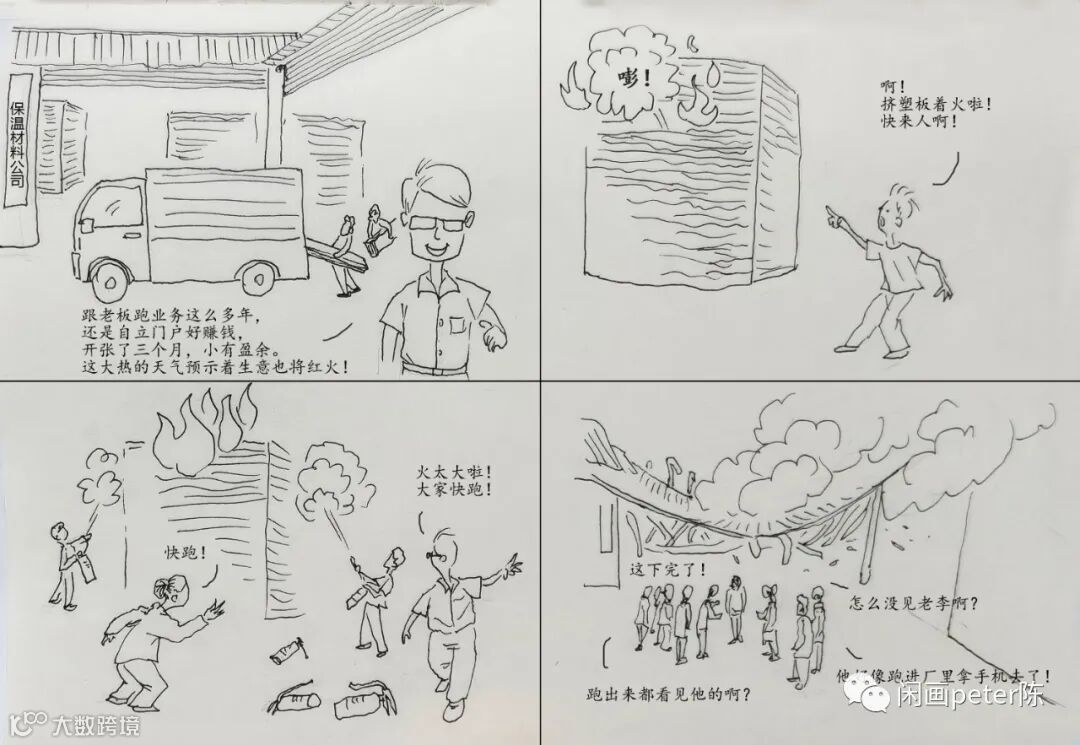 保温材料公司
跟老板跑业务这么多年,
还是自立门户好赚钱,
开张了三个月,小有盈余。
这大热的天气预示着生意也将红火!
嘭!
啊!
挤塑板着火啦!
快来人啊!
火太大啦!
大家快跑!
快跑!
这下完了!
怎么没见老李啊?
跑出来都看见他的啊?
他好像跑进厂里拿手机去了!
闲画peter陈
大数跨境